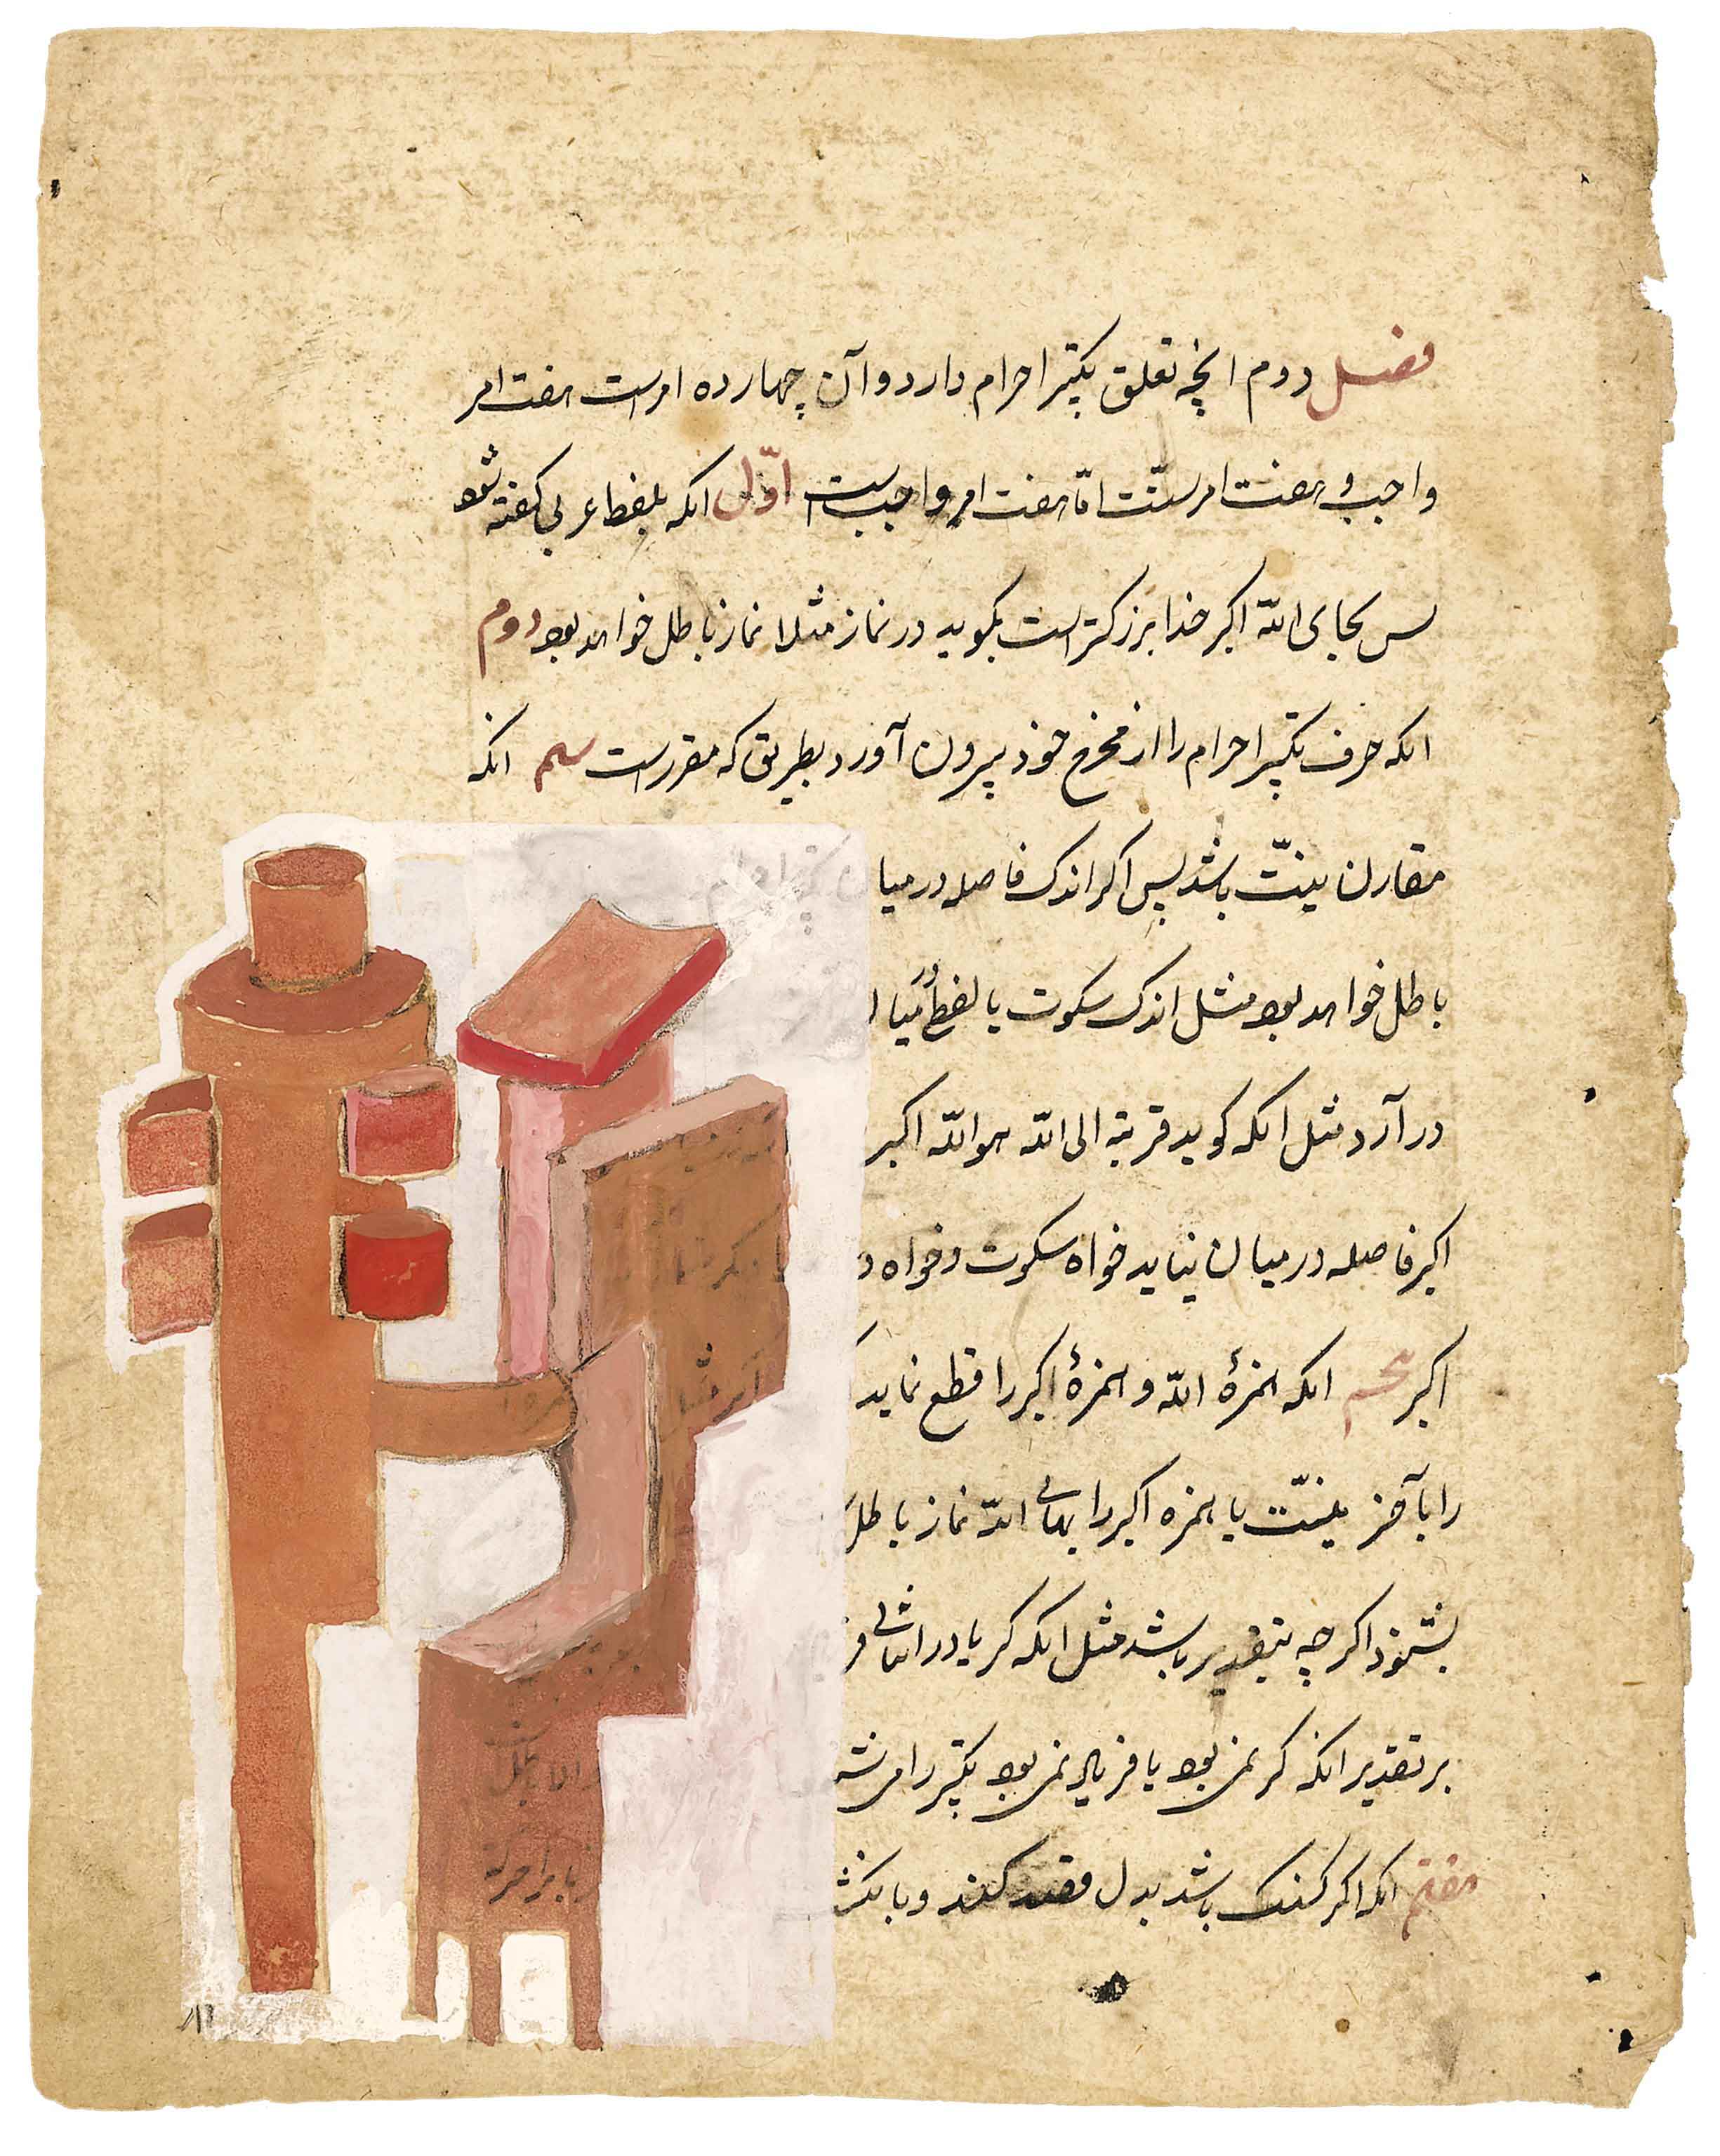 فصل دوم انچه تعلق بتکبیر احرام دارد و آن چهارده امرست هفت امر
واجب و هفت امر سنّت امّا هفت امر واجبست اوّل انکه بلفظ عربی کفته شود
پس بجای الله اکبر خدا بزرکترست بکوید در نماز مثلا نماز باطل خواهد بود دوم
انکه حرف تکبیر احرام را از مخرج خود بیرون آورد بطریق که مقررست سیم انکه
مقارن بنیّت باشد پس اکر اندک فاصله در میان
باطل خواهد بود مثل اندک سکوت یا لفظ
در آرد مثل انکه کوید قربة الی الله هو الله اکبر
اکبر فاصله در میان نیاید خواه سکوت و خواه
اکبر پنجم انکه همزهٔ الله و همزهٔ اکبر را قطع نماید
را بآخر نیّت یا همزه اکبر را بهای الله نماز باطل
بشنود اکرچه بتقدیر باشد مثل انکه کر یا در اثنای
بر تقدیر انکه کر نمی بود یا فریاد نمی بود تکبیر را
هفتم انکه اکر کنک باشد بدل قصد کند و با